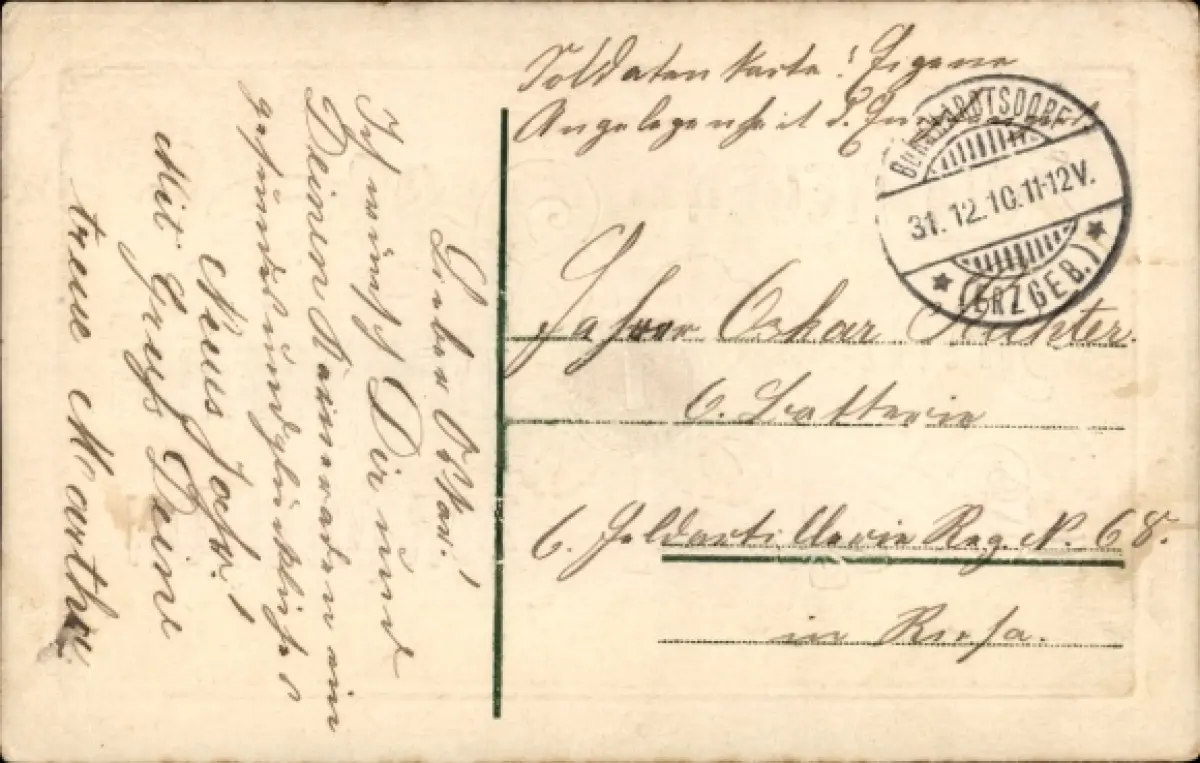 Soldaten Karte! Eigene
Angelegenheit d. Empfängers
BURKHARDTSDORF
31.12.10.11-12V.
* (ERZGEB.) *
Oskar Richter.
6. Batterie
6. Feldartillerie Reg. N. 68.
in Riesa.
Lieber Oskar!
Ich wünsch Dir und
Deinen Kameraden ein
gesundes und glückliches
Neues Jahr!
Mit Gruß Deine
treue Marthe.